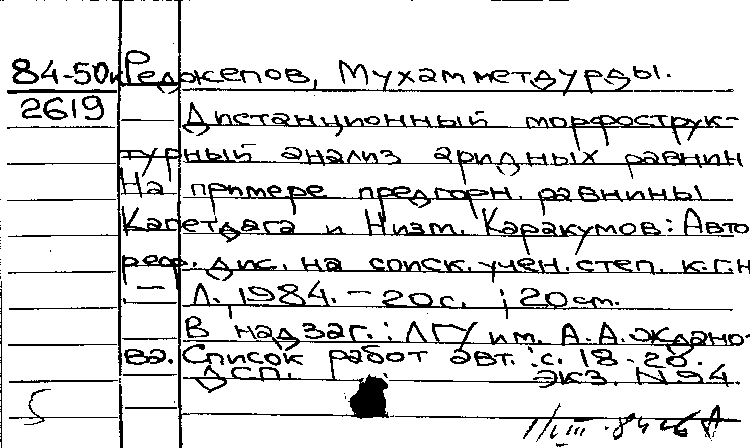 84-50к Реджепов, Мухамметдурды.
2619
Дистанционный морфострук-
турный анализ аридных равнин
На примере предгорн. равнины
Капетдага и Низм. Каракумов: Авто
реф. дис. на соиск. учен. степ. к.г.н
- Л., 1984. - 20с. ; 20 см.
В надзаг.: ЛГУ им. А.А. Ждано-
ва. Список работ авт.: с. 18-20.
ДСП. Экз. N 94.
5